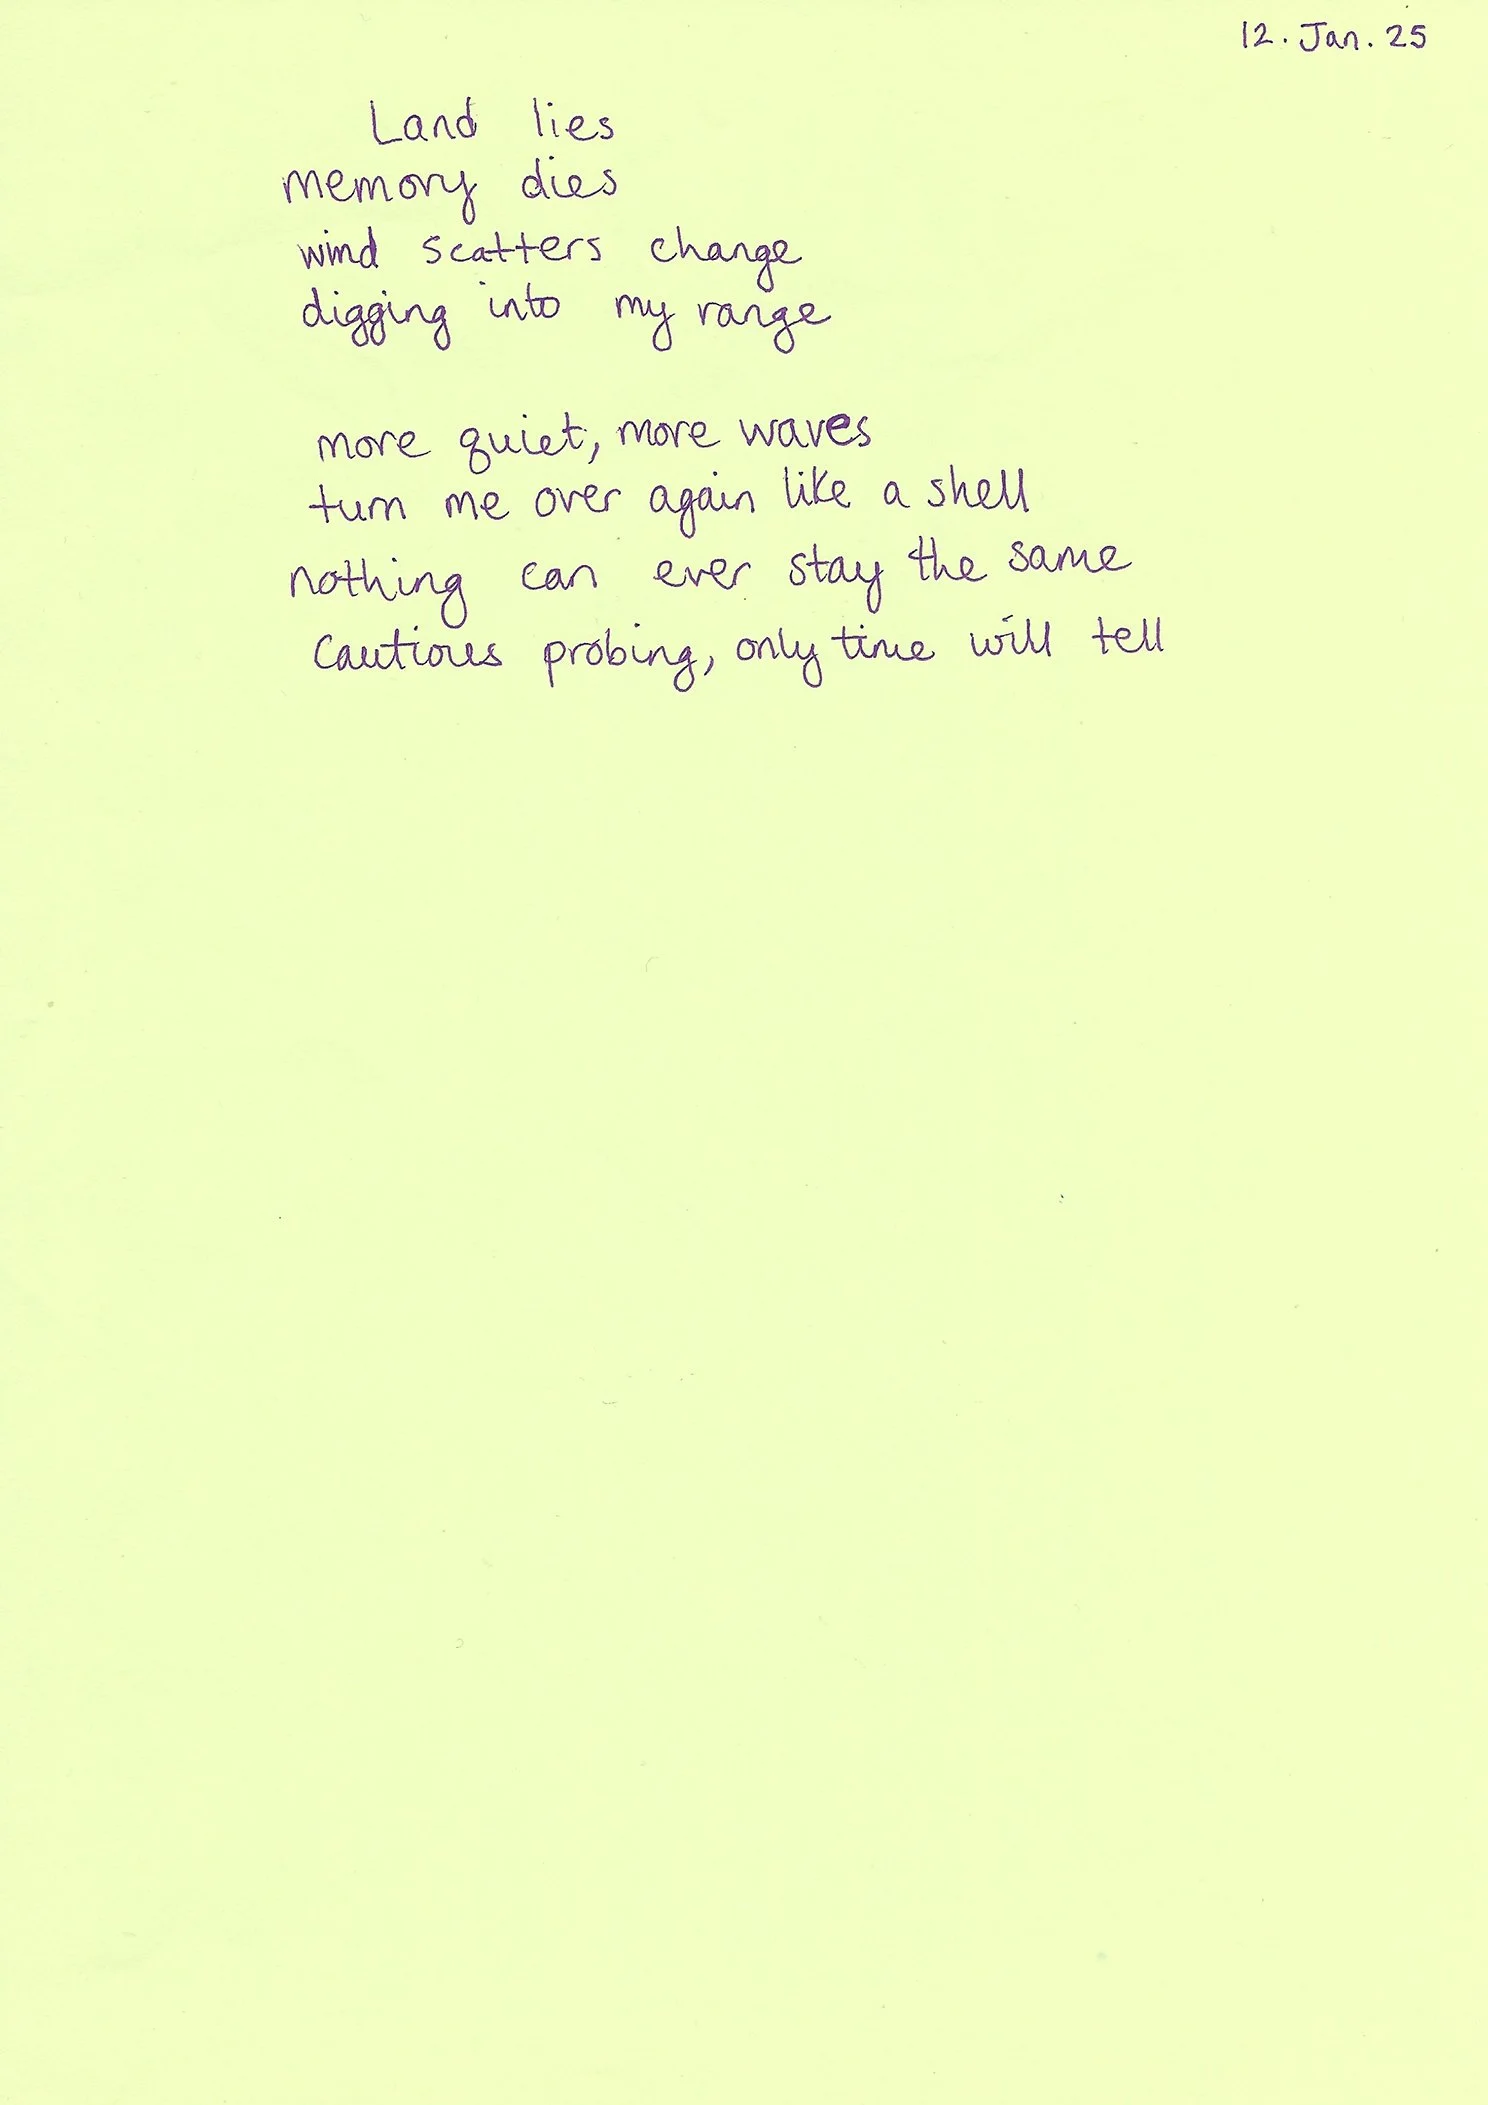 12. Jan. 25
Land lies
memory dies
wind scatters change
digging into my range
more quiet, more waves
turn me over again like a shell
nothing can ever stay the same
Cautious probing, only time will tell